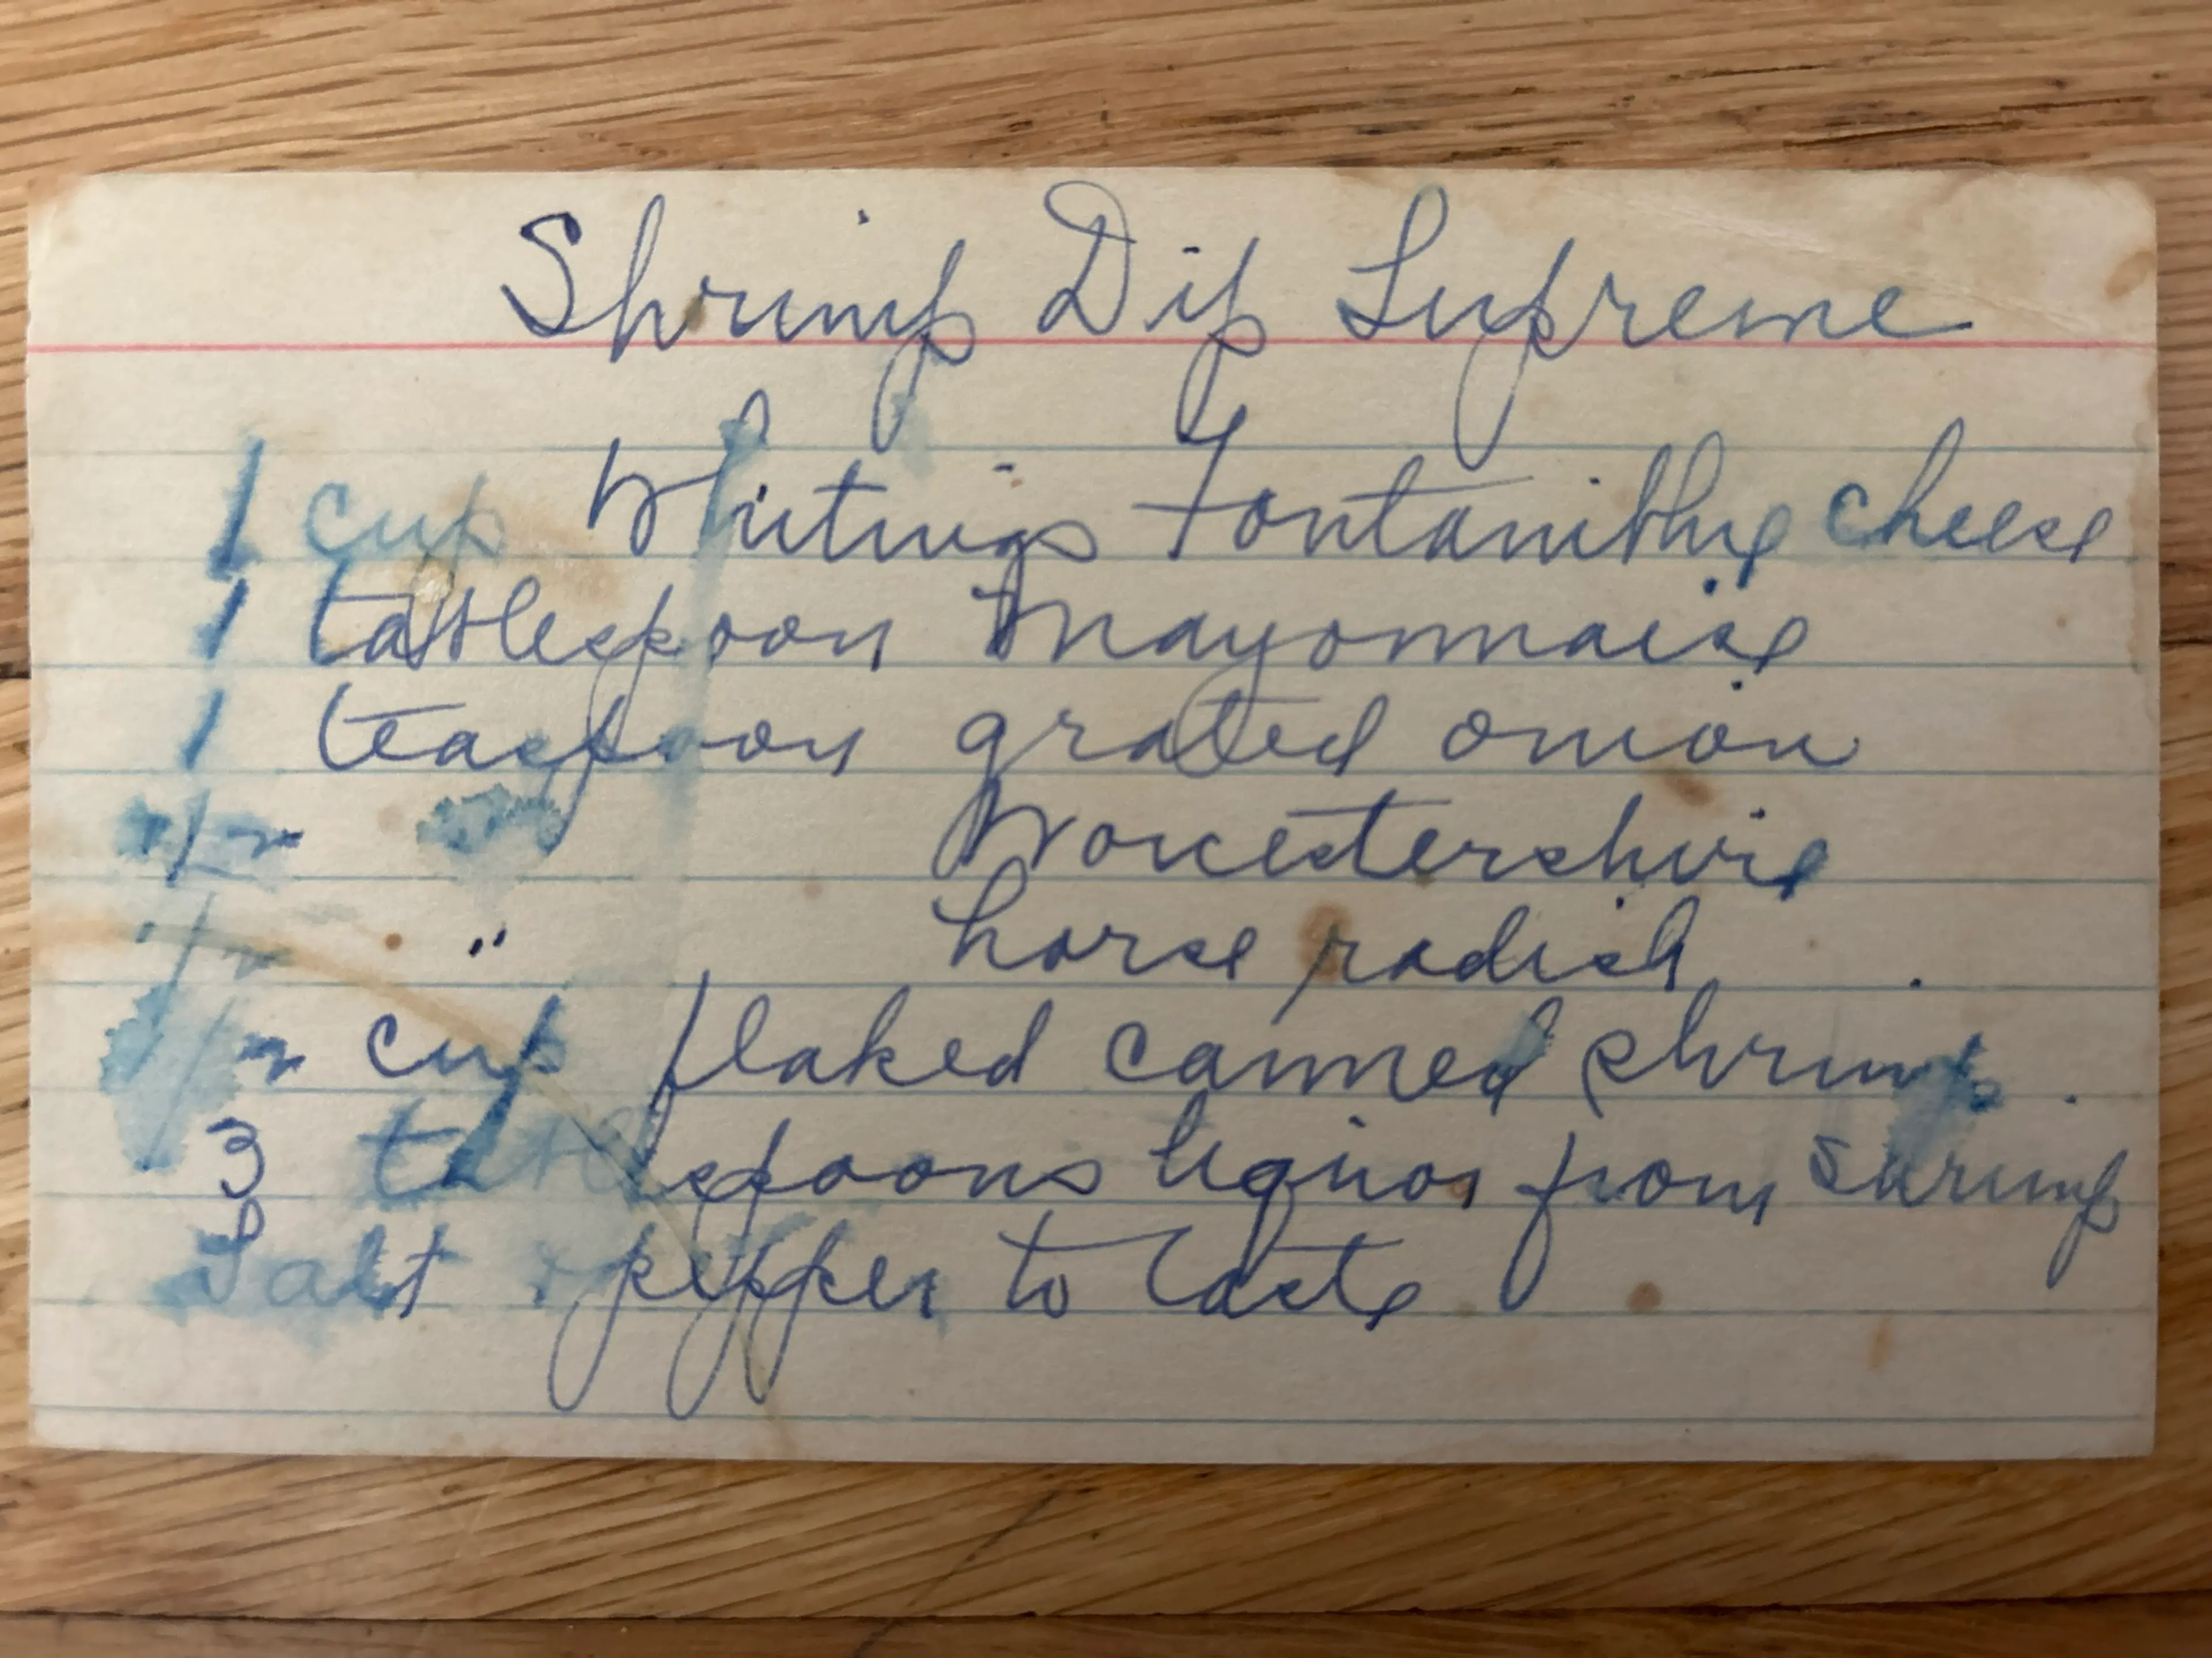 Shrimp Dip Supreme
1 cup Whitings Fontaniblue cheese
1 tablespoon Mayonnaise
1 teaspoon grated onion
1/2 Worcestershire
1/2 " horse radish
1/2 cup flaked canned shrimp.
3 tablespoons liquor from shrimp
Salt & pepper to taste